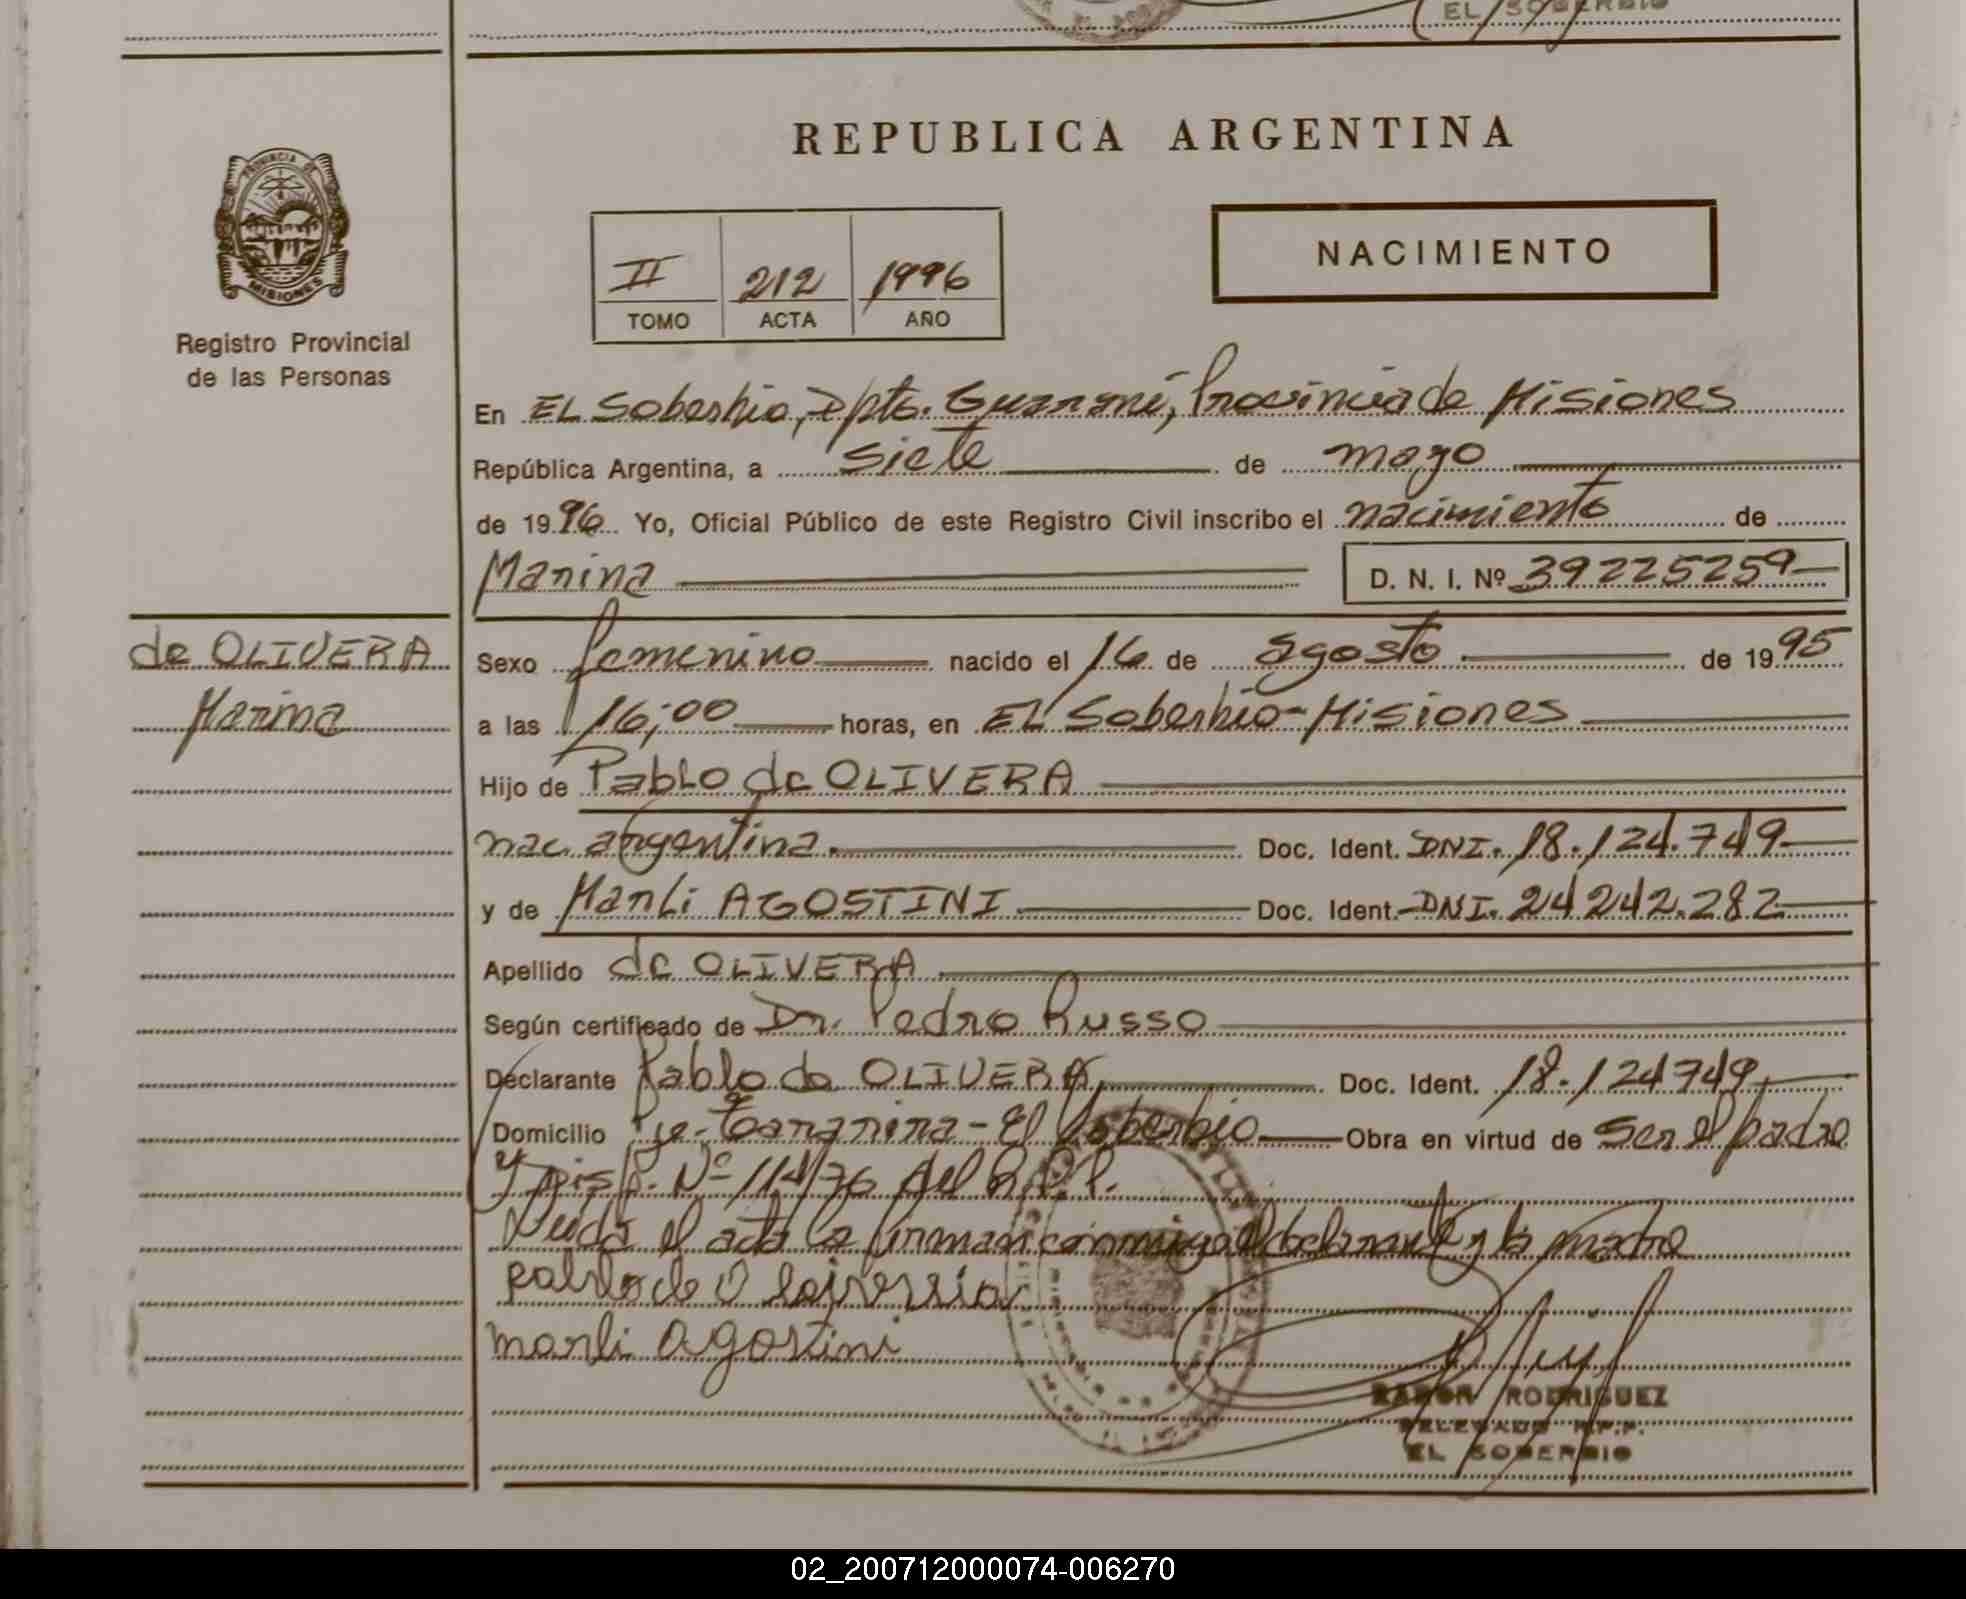 EL SOBERBIO
REPUBLICA ARGENTINA
PROVINCIA DE
MISIONES
Registro Provincial
de las Personas
II 212 1996
TOMO ACTA AÑO
NACIMIENTO
En EL Soberbio, Dpto. Guaraní, Provincia de Misiones
República Argentina, a siete de mayo
de 1996 Yo, Oficial Público de este Registro Civil inscribo el nacimiento de
Marina D. N. I. Nº 39225259
de OLIVERA
Marina
Sexo femenino nacido el 16 de agosto de 1995
a las 16;00 horas, en EL Soberbio-Misiones
Hijo de PabLo de OLIVERA
nac. argentina. Doc. Ident. DNI. 18.124.749
y de MarLi AGOSTINI Doc. Ident. DNI. 24242.282
Apellido de OLIVERA
Según certificado de Dr. Pedro Russo
Declarante Pablo de OLIVERA, Doc. Ident. 18.124749
Domicilio El Soberbio Obra en virtud de ser el padre
y Disp. Nº 114/76 del R.P.P.
Leída el acta la firman conmigo el declarante y la madre
Pablo de
marli agostini
RAMON RODRIGUEZ
DELEGADO R.P.P.
EL SOBERBIO
02_200712000074-006270